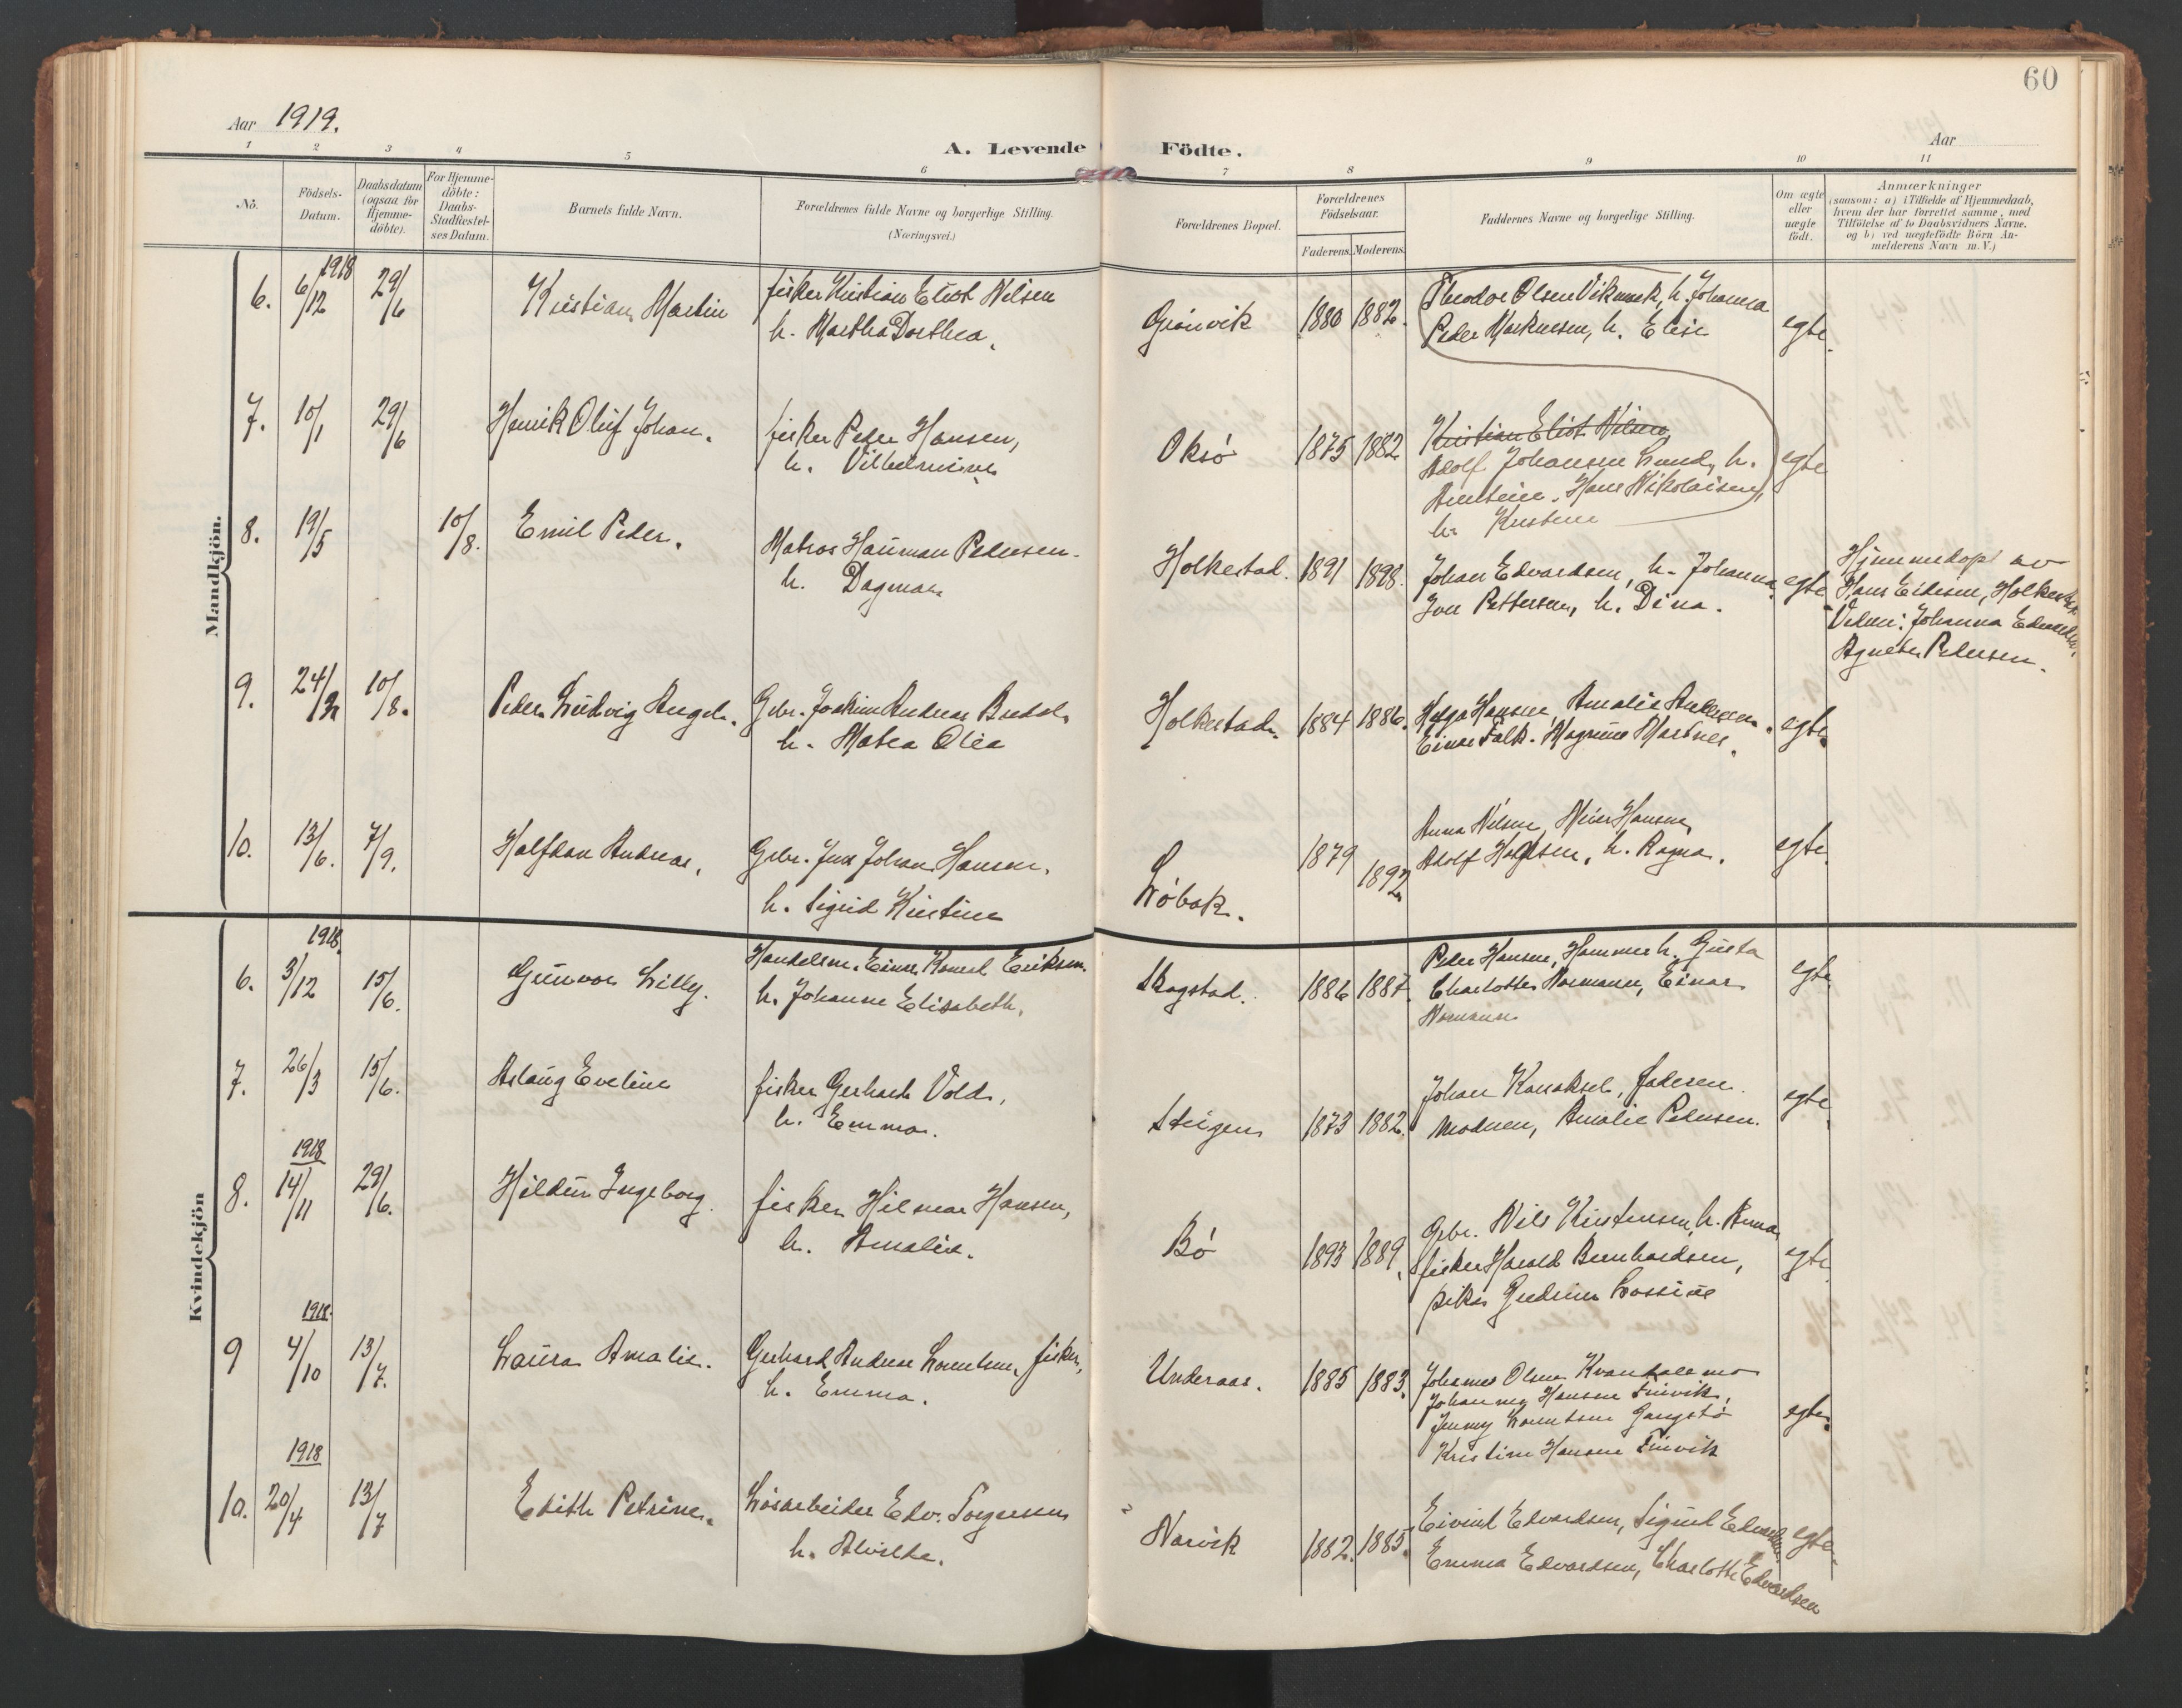 60
Aar 1919.
Aar
A. Levende Födte.
1 2 3 4 5 6 7 8 9 10 11
No.
Födsels-
Datum.
Daabsdatum
(ogsaa for
Hjemme-
döbte).
For Hjemme-
döbte:
Daabs-
Stadfæstel-
ses Datum.
Barnets fulde Navn.
Forældrenes fulde Navne og borgerlige Stilling.
(Næringsvei.)
Forældrenes Bopæl.
Forældrenes
Födselsaar.
Faderens. Moderens.
Faddernes Navne og borgerlige Stilling.
Om ægte
eller
uægte
födt.
Anmærkninger
(saasom: a) i Tilfælde af Hjemmedaab,
hvem der har forrettet samme, med
Tilföielse af to Daabsvidners Navne.
og b) ved uægtefödte Börn An-
melderens Navn m. V.)
Mandkjön.
6. 1918 6/12 29/6 Kristian Martin
fisker Kristian Eliot Nilsen
h. Martha Dorthea.
Grönvik 1880 1882.
Theodor Olsen h. Johanna
Peder Markussen, h. Elise
egte.
7. 10/1 29/6 Henrik Oluf Johan.
fisker Peder Hansen,
h. Vilhelmine
Oksö 1875 1882
Kristian Eliot Nilsen,
Adolf Johansen Lund, h.
Hans Nikolaisen,
h. Kristine
egte
8. 19/5 10/8. Emil Peder.
Matros Hauman Pedersen.
h. Dagmar
Holkestad. 1891 1898.
Johan Edvardsen, h. Johanna
Iver Pettersen, h. Dina.
egte
Hjemmedöpt av
Hans Eidisen, Holkestad.
Johanna Edvardsen.
Agnete Pedersen.
9. 24/2 10/8. Peder Ludvig Angel.
Gbr. Joakim Andreas Bredal
h. Matea Olea
Holkestad. 1884 1886.
Helga Hansen, Amalie Andersen.
Einar Falk. Magnus Marhnes.
egte.
10. 13/6. 7/9. Halfdan Andreas.
Gbr. Jens Johan Hansen.
h. Sigrid Kirstine
Löbak. 1879 1892
Anna Nilsen, Meier Hansen,
Adolf h. Ragna.
egte.
Kvindekjön
6. 1918. 3/12 15/6. Gunvor Lilly.
Handelsm. Einar Konrad Eriksen.
h. Johanne Elisabeth.
Skagstad. 1886 1887.
Peder Hansen, Hammer h. Gusta
Charlotte Normann, Einar
Normann
egte.
7. 26/3 15/6. Aslaug Eveline
fisker Gerhard Vold,
h. Emma.
Steigen 1873 1882.
Johan faderen.
moderen, Amalie Pedersen.
egte.
8. 1918 14/11 29/6. Hildur Ingeborg.
fisker Hilmar Hansen,
h. Amalie.
Bö 1893 1889.
Gbr. Nils Kristensen, h. Anna
fisker Harald Bernhardsen,
pike Gudrun Lossius
egte.
9 1918. 4/10 13/7. Laura Amalie.
Gerhard Andreas Lorentsen, fisker,
h. Emma.
Underaas. 1885 1883.
Johannes Olsen Kvandalsmo
Johanna Hansen Finvik,
Jenny Lorentsen Gangstö
Kristine Hansen Finvik
egte.
10. 1918 20/4 13/7 Edith Petrine.
Lösarbeider Edv. Torgersen
h. Alvilde.
Narvik 1882. 1885.
Eivind Edvardsen, Sigurd Edvardsen
Emma Edvardsen, Charlotte Edvardsen
egte.